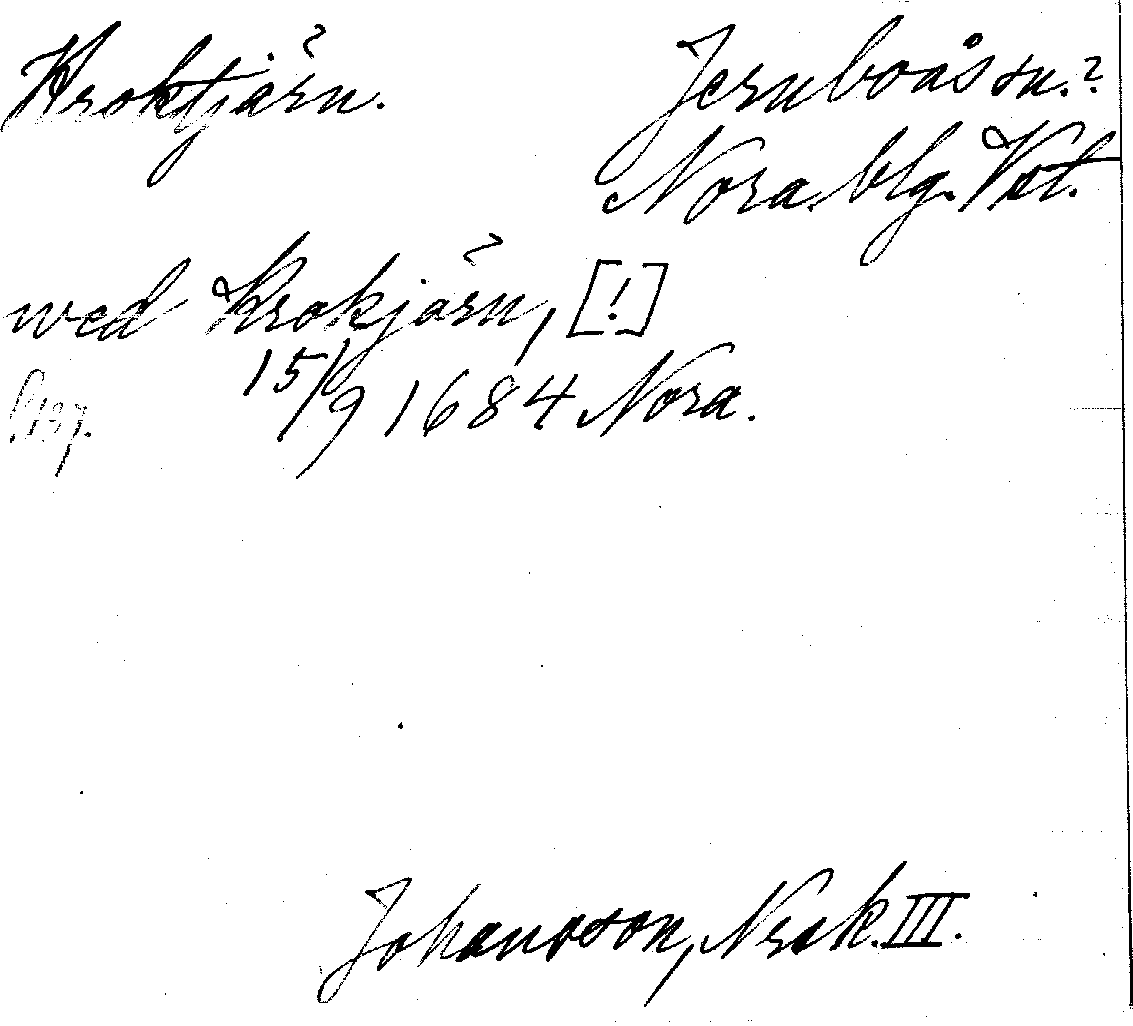 Kroktjärn. Jernboås sn.?
Nora blg. Vstl.
wed Krokjärn, [!]
15/9 1684 Nora.
s. 197.
Johansson, Nrsk. III.